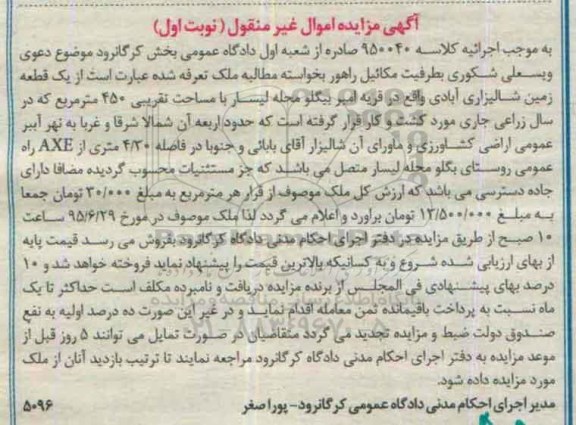 آگهی مزایده اموال غیر منقول (نوبت اول)
به موجب اجرائیه کلاسه ۹۵۰۰۴۰ صادره از شعبه اول دادگاه عمومی بخش کرگانرود موضوع دعوی
ویسعلی شکوری بطرفیت مکائیل راهور بخواسته مطالبه ملک تعرفه شده عبارت است از یک قطعه
زمین شالیزاری آبادی واقع در قریه امیر بیگلو محله لیسار با مساحت تقریبی ۴۵۰ مترمربع که در
سال زراعی جاری مورد کشت و کار قرار گرفته است که حدود اربعه آن شمالا شرقا و غربا به نهر آببر
عمومی اراضی کشاورزی و ماورای آن شالیزار آقای بابائی و جنوبا در فاصله ۴/۳۰ متری از AXE راه
عمومی روستای بگلو محله لیسار متصل می باشد که جز مستثنیات محسوب گردیده مضافا دارای
جاده دسترسی می باشد که ارزش کل ملک موصوف از قرار هر مترمربع به مبلغ ۳۰/۰۰۰ تومان جمعا
به مبلغ ۱۳/۵۰۰/۰۰۰ تومان براورد و اعلام می گردد لذا ملک موصوف در مورخ ۹۵/۶/۲۹ ساعت
۱۰ صبح از طریق مزایده در دفتر اجرای احکام مدنی دادگاه کرگانرود بفروش می رسد قیمت پایه
از بهای ارزیابی شده شروع و به کسانیکه بالاترین قیمت را پیشنهاد نماید فروخته خواهد شد و ۱۰
درصد بهای پیشنهادی فی المجلس از برنده مزایده دریافت و نامبرده مکلف است حداکثر تا یک
ماه نسبت به پرداخت باقیمانده ثمن معامله اقدام نماید و در غیر این صورت ده درصد اولیه به نفع
صندوق دولت ضبط و مزایده تجدید می گردد متقاضیان در صورت تمایل می توانند ۵ روز قبل از
موعد مزایده به دفتر اجرای احکام مدنی دادگاه کرگانرود مراجعه نمایند تا ترتیب بازدید آنان از ملک
مورد مزایده داده شود.
مدیر اجرای احکام مدنی دادگاه عمومی کرگانرود - پوراصغر ۵۰۹۶